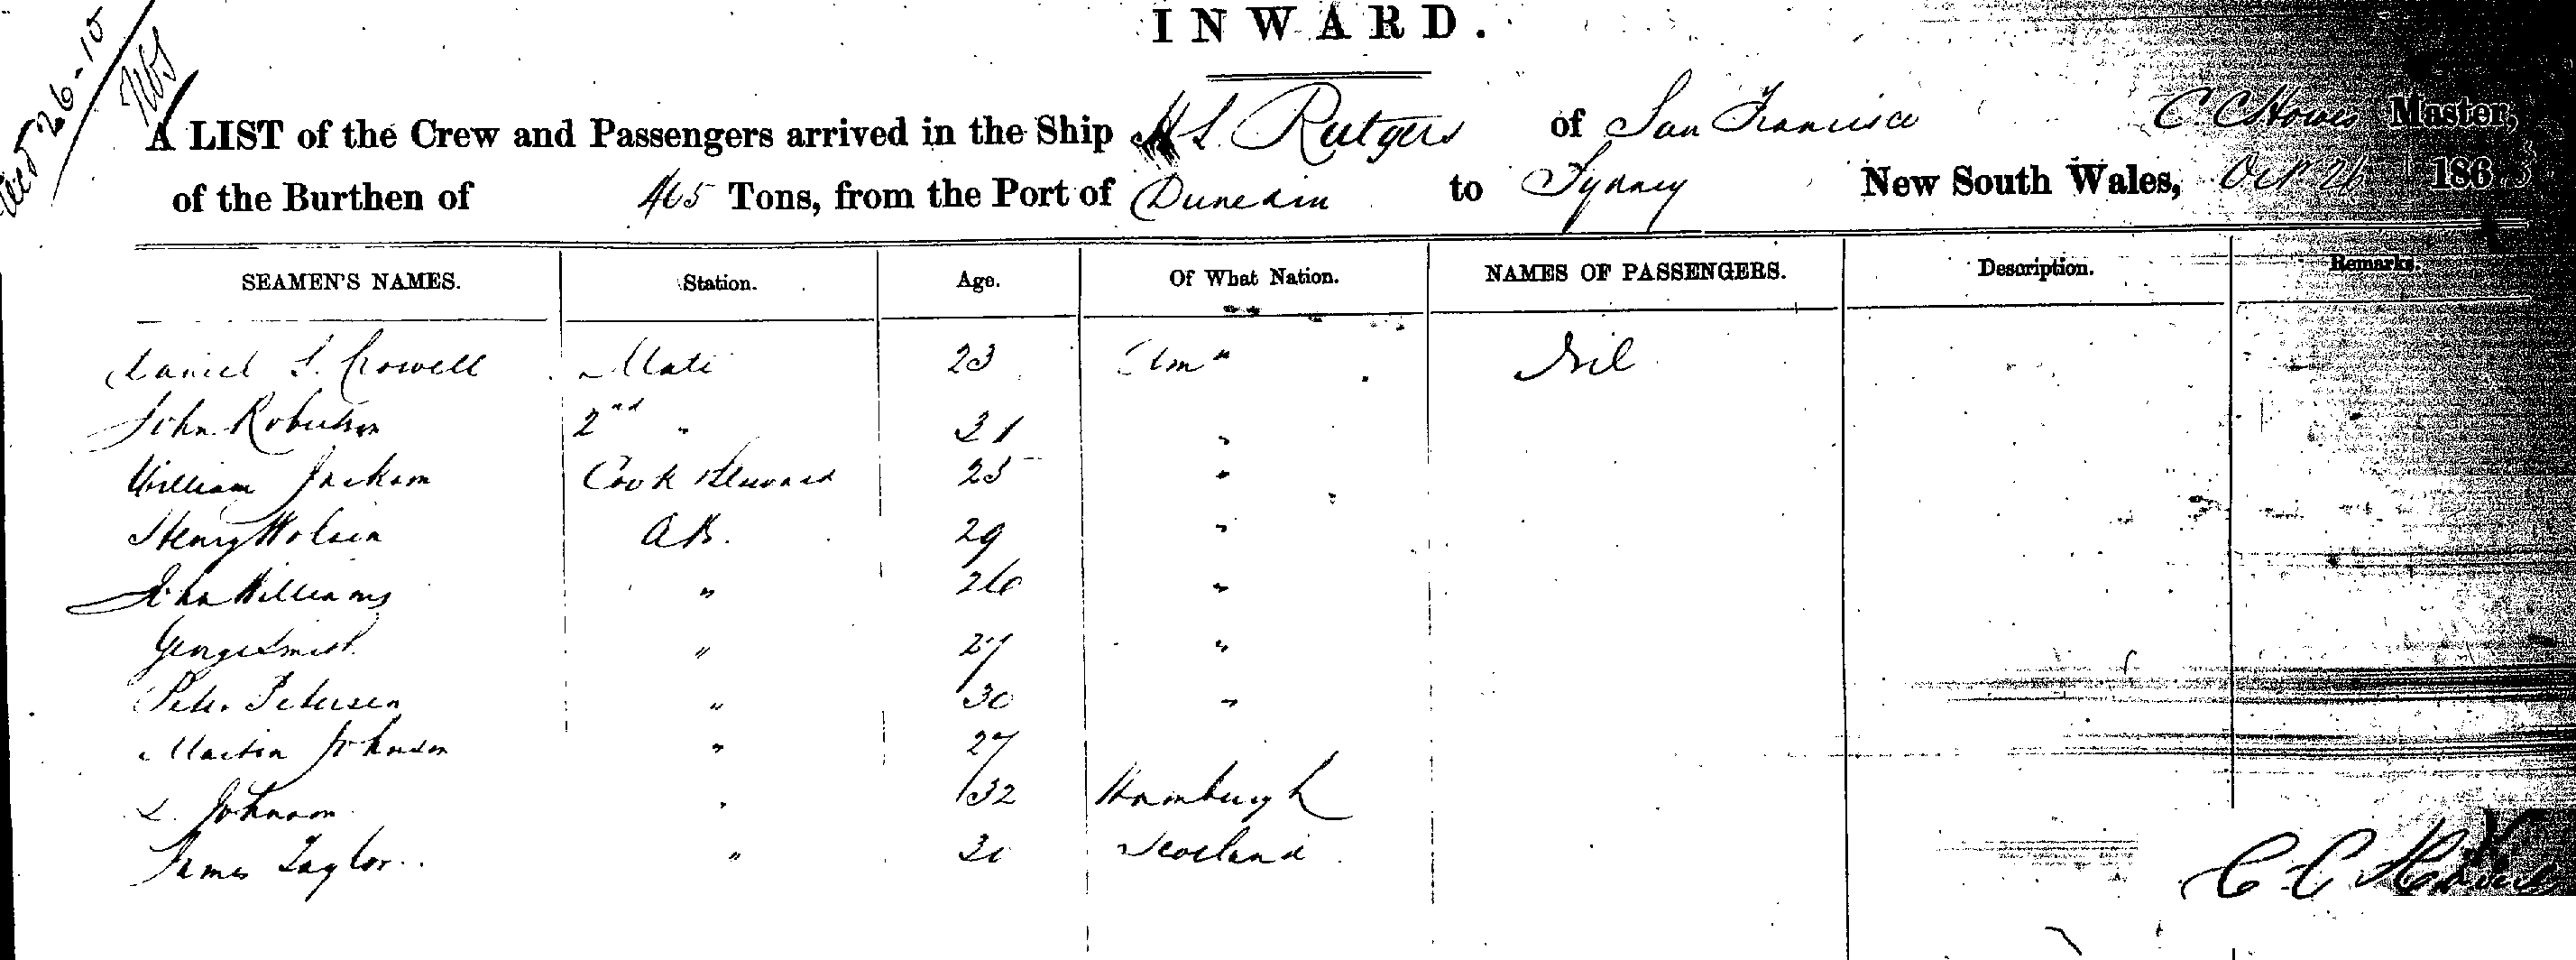 INWARD.
A LIST of the Crew and Passengers arrived in the Ship H L Rutgers of San Francisco C C Howes Master,
of the Burthen of 465 Tons, from the Port of Dunedin to Sydney New South Wales, Oct 26 1863
SEAMEN'S NAMES. Station. Age. Of What Nation. NAMES OF PASSENGERS. Description. Remarks.
Daniel L. Crowell Mate 23 Am" Nil
John Robertson 2nd " 31 "
William Jackson Cook Steward 25 "
Henry A.B. 29 "
John Williams " 26 "
George Smith " 27 "
Peter Petersen " 30 "
Martin Johnson " 27
L. Johnson " 32 Hamburgh
James Taylor " Scotland
C C Howes